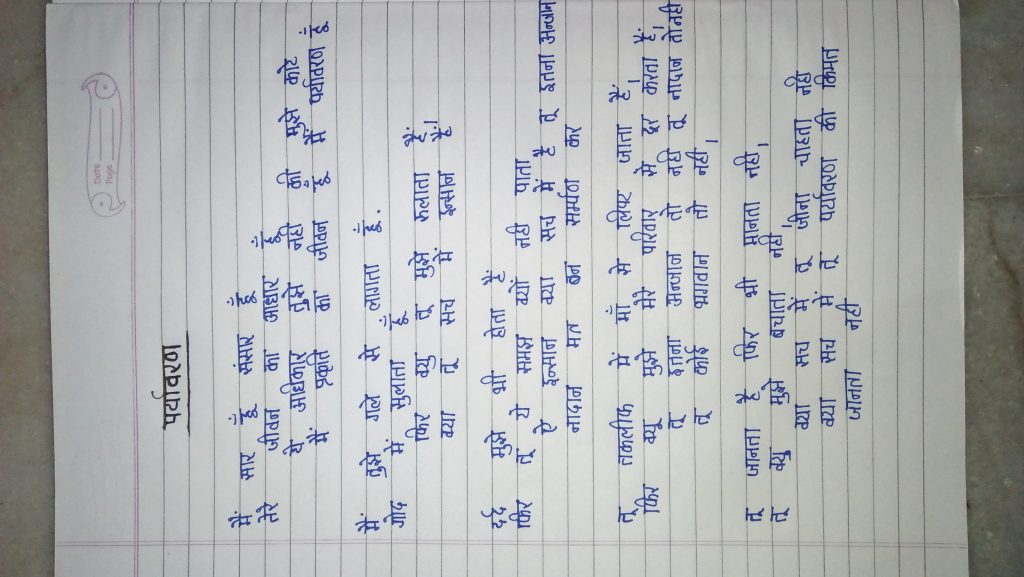 Date
Page
पर्यावरण
मैं सार हूँ संसार हूँ
तेरे जीवन का आधार हूँ
ये अधिकार तुझे नही की मुझे काटे
में प्रकृति का जीवन हूँ मैं पर्यावरण हूँ
मैं तुझे गले से लागता हूँ.
गोद में सुलाता हूँ
फिर क्यु तू मुझे रुलाता हैं
क्या तू सच में इन्सान हैं।
दर्द मुझे भी होता हैं
फिर तू ये समझ क्यों नही पाता
ऐ इन्सान क्या सच में है तू इतना अन्जान
नादान मत बन सर्मपण कर
तू तकलीफ में माँ से लिपट जाता हैं
फिर क्यू मुझे मेरे परिवार से दूर करता हैं।
तू इतना अन्जान तो नही तू नादान तो नही
तू कोई भगवान तो नही।
तू जानता है फिर भी मानता नही,
तू क्यु मुझे बचाता नही,
क्या सच में तू जीना चाहता नही
क्या सच में तू पर्यावरण की किमत
जानता नही